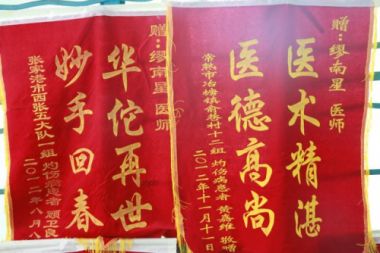 赠：缪南星 医师
华佗再世
妙手回春
张家港市西张五大队一组 灼伤病患者 顾卫良
二〇一二年八月八
赠：缪南星 医师
医术精湛
医德高尚
常熟市冶塘镇俞巷村十二组 灼伤病患者 黄嘉维 敬赠
二〇一二年十一月十一日